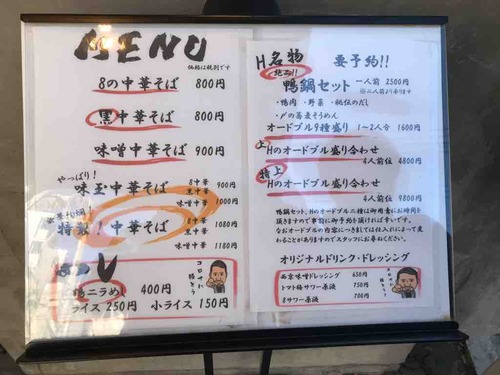 MENU
価格は税別です
8の中華そば 800円
黒中華そば 800円
味噌中華そば 900円
やっぱり!
味玉中華そば
8中華
黒中華 900円
味噌中華 1000円
特製!中華そば
8中華
黒中華 1080円
味噌中華 1180円
鴨ニラめし 400円
ライス 250円 小ライス 150円
コロナに
勝とう
H名物 要予約!!
鴨鍋セット 一人前 2500円
※二人前より承ります
・鴨肉 ・野菜 ・秘伝のだし
・〆の蕎麦そうめん
オードブル9種盛り 1~2人台 1600円
上 Hのオードブル盛り合わせ
4人前位 4800円
特上 Hのオードブル盛り合わせ
4人前位 9800円
鴨鍋セット、Hのオードブル二種は御用意にお時間を
頂きますので事前に御予約を頂ければ幸いです。
なおオードブルの内容につきましては仕入れによって変
わることがありますのでスタッフにお尋ねください。
オリジナルドリンク・ドレッシング
西京味噌ドレッシング 650円
トマト梅サワー原液 750円
8サワー原液 700円